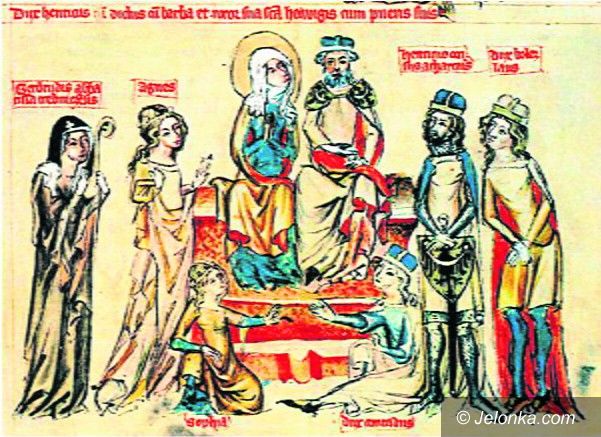 Dux henricus dictus cū barba et uxor sua scā hedwigis cum pueris suis
Gerdrudis abba
Agnes
henricus occi
sus a
dux boles
laus
Sophia
dux conradus
© Jelonka.com